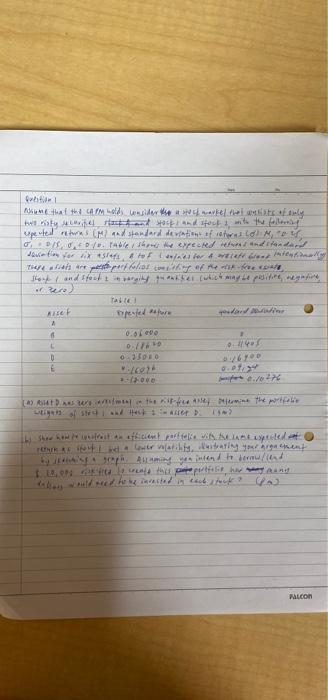 Question 1
Assume that the CAPM holds. Consider a stock market that consists of only
two risky securities stock 1 and stock 2 with the following
expected returns (M) and standard deviations of returns
σ1 = 0.15, σ2 = 0.10. Table 1 shows the expected returns and standard
deviation for six assets, A to F (entries for A are left blank intentionally)
These assets are portfolios consisting of the risk-free asset,
stock 1 and stock 2 in varying quantities (which may be positive, negative
or zero)
Table 1
Asset Expected Return Standard Deviation
A
B 0.06000 0
C 0.11405
D 0.25000 0.16400
E
0.12000 0.10276
(a) Asset D has zero investment in the risk-free asset. Determine the portfolio
weights of stock 1 and stock 2 in asset D.
(b) Show how to construct an efficient portfolio with the same expected
return as stock 1 but a lower volatility, illustrating your argument
by sketching a graph. Assuming you intend to borrow/lend
$ 10,000 risk-free to create this portfolio, how many
dollars would need to be invested in each stock?
FALCON